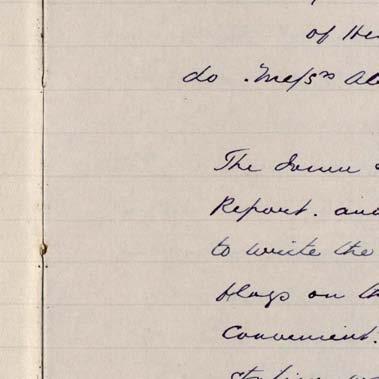 of He
do. Mess<sup>rs</sup> Al
The Town
Report. and
to write the
flags on th
Convenient.